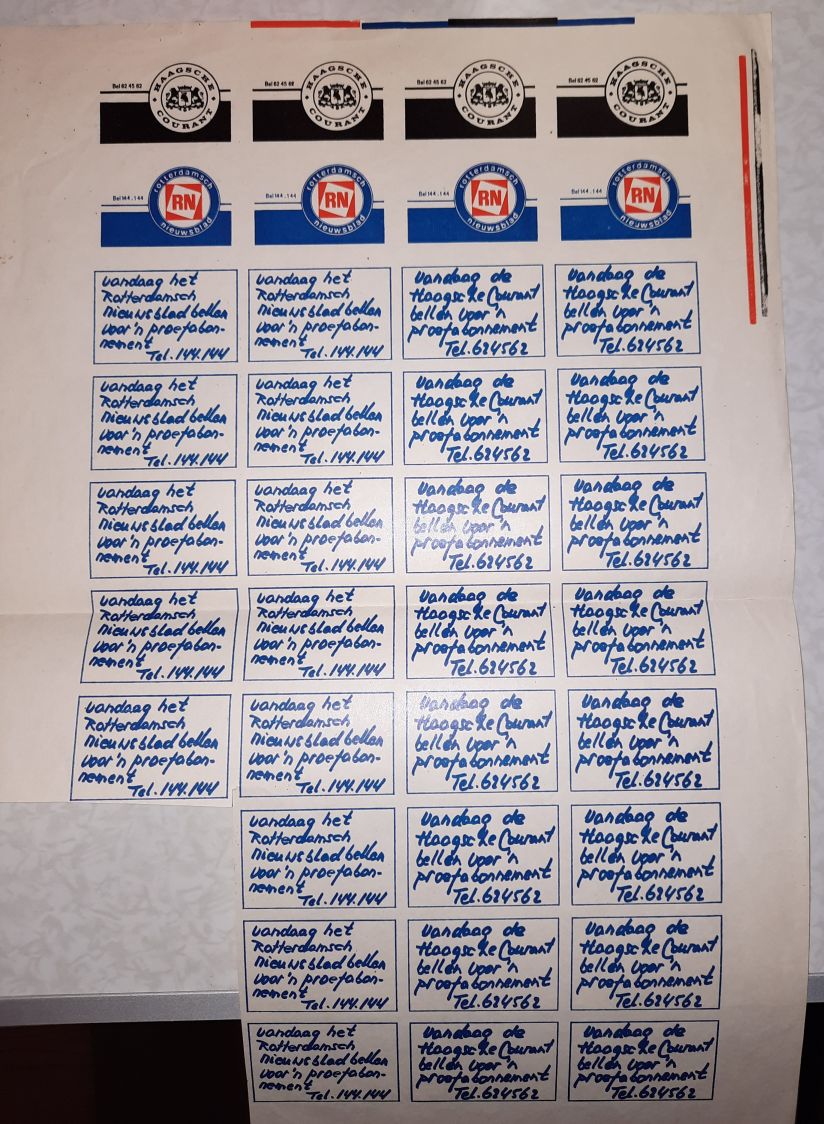 Bel 62 45 62
HAAGSCHE
COURANT
Bel 62 45 62
HAAGSCHE
COURANT
Bel 62 45 62
HAAGSCHE
COURANT
Bel 62 45 62
HAAGSCHE
COURANT
Bel 144.144
rotterdamsch
RN
nieuwsblad
Bel 144.144
rotterdamsch
RN
nieuwsblad
Bel 144.144
rotterdamsch
RN
nieuwsblad
Bel 144.144
rotterdamsch
RN
nieuwsblad
vandaag het
Rotterdamsch
nieuwsblad bellen
voor 'n proefabon-
nement
Tel. 144.144
vandaag het
Rotterdamsch
nieuwsblad bellen
voor 'n proefabon-
nement
Tel. 144.144
Vandaag de
Haagsche Courant
bellen voor 'n
proefabonnement
Tel. 624562
Vandaag de
Haagsche Courant
bellen voor 'n
proefabonnement
Tel. 624562
vandaag het
Rotterdamsch
nieuwsblad bellen
voor 'n proefabon-
nement
Tel. 144.144
vandaag het
Rotterdamsch
nieuwsblad bellen
voor 'n proefabon-
nement
Tel. 144.144
Vandaag de
Haagsche Courant
bellen voor 'n
proefabonnement
Tel. 624562
Vandaag de
Haagsche Courant
bellen voor 'n
proefabonnement
Tel. 624562
vandaag het
Rotterdamsch
nieuwsblad bellen
voor 'n proefabon-
nement
Tel. 144.144
vandaag het
Rotterdamsch
nieuwsblad bellen
voor 'n proefabon-
nement
Tel. 144.144
Vandaag de
Haagsche Courant
bellen voor 'n
proefabonnement
Tel. 624562
Vandaag de
Haagsche Courant
bellen voor 'n
proefabonnement
Tel. 624562
vandaag het
Rotterdamsch
nieuwsblad bellen
voor 'n proefabon-
nement
Tel. 144.144
vandaag het
Rotterdamsch
nieuwsblad bellen
voor 'n proefabon-
nement
Tel. 144.144
Vandaag de
Haagsche Courant
bellen voor 'n
proefabonnement
Tel. 624562
Vandaag de
Haagsche Courant
bellen voor 'n
proefabonnement
Tel. 624562
vandaag het
Rotterdamsch
nieuwsblad bellen
voor 'n proefabon-
nement
Tel. 144.144
vandaag het
Rotterdamsch
nieuwsblad bellen
voor 'n proefabon-
nement
Tel. 144.144
Vandaag de
Haagsche Courant
bellen voor 'n
proefabonnement
Tel. 624562
Vandaag de
Haagsche Courant
bellen voor 'n
proefabonnement
Tel. 624562
vandaag het
Rotterdamsch
nieuwsblad bellen
voor 'n proefabon-
nement
Tel. 144.144
Vandaag de
Haagsche Courant
bellen voor 'n
proefabonnement
Tel. 624562
Vandaag de
Haagsche Courant
bellen voor 'n
proefabonnement
Tel. 624562
vandaag het
Rotterdamsch
nieuwsblad bellen
voor 'n proefabon-
nement
Tel. 144.144
Vandaag de
Haagsche Courant
bellen voor 'n
proefabonnement
Tel. 624562
Vandaag de
Haagsche Courant
bellen voor 'n
proefabonnement
Tel. 624562
vandaag het
Rotterdamsch
nieuwsblad bellen
voor 'n proefabon-
nement
Tel. 144.144
Vandaag de
Haagsche Courant
bellen voor 'n
proefabonnement
Tel. 624562
Vandaag de
Haagsche Courant
bellen voor 'n
proefabonnement
Tel. 624562